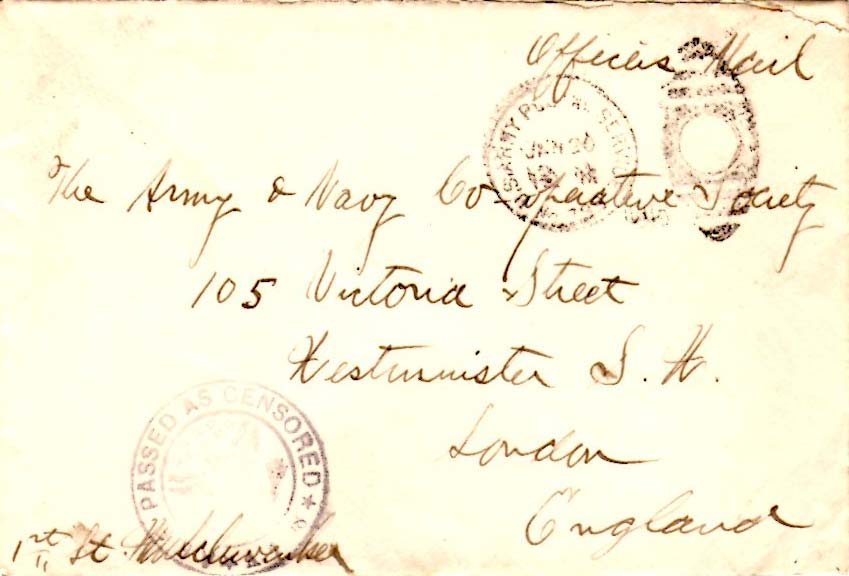 Officers Mail
U.S. ARMY POSTAL SERVICE
JAN 20
The Army & Navy Co-operative Society
105 Victoria Street
Westminster S. W.
London
England
PASSED AS CENSORED
1st Lt